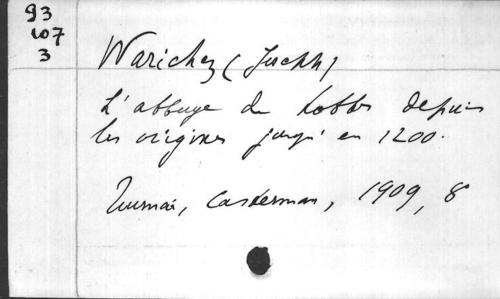 93
107
3
Warichez (Joseph)
L'abbaye de Lobbes depuis
les origines jusqu'en 1200.
Tournai, Casterman, 1909, 8°